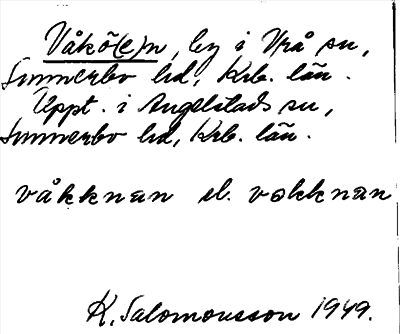 Våkö(e)n, by i Vrå sn,
Sunnerbo hd, Krb. län.
Uppt. i Angelstads sn,
Sunnerbo hd, Krb. län.
våkknan el. vokknan
K. Salomonsson 1949.